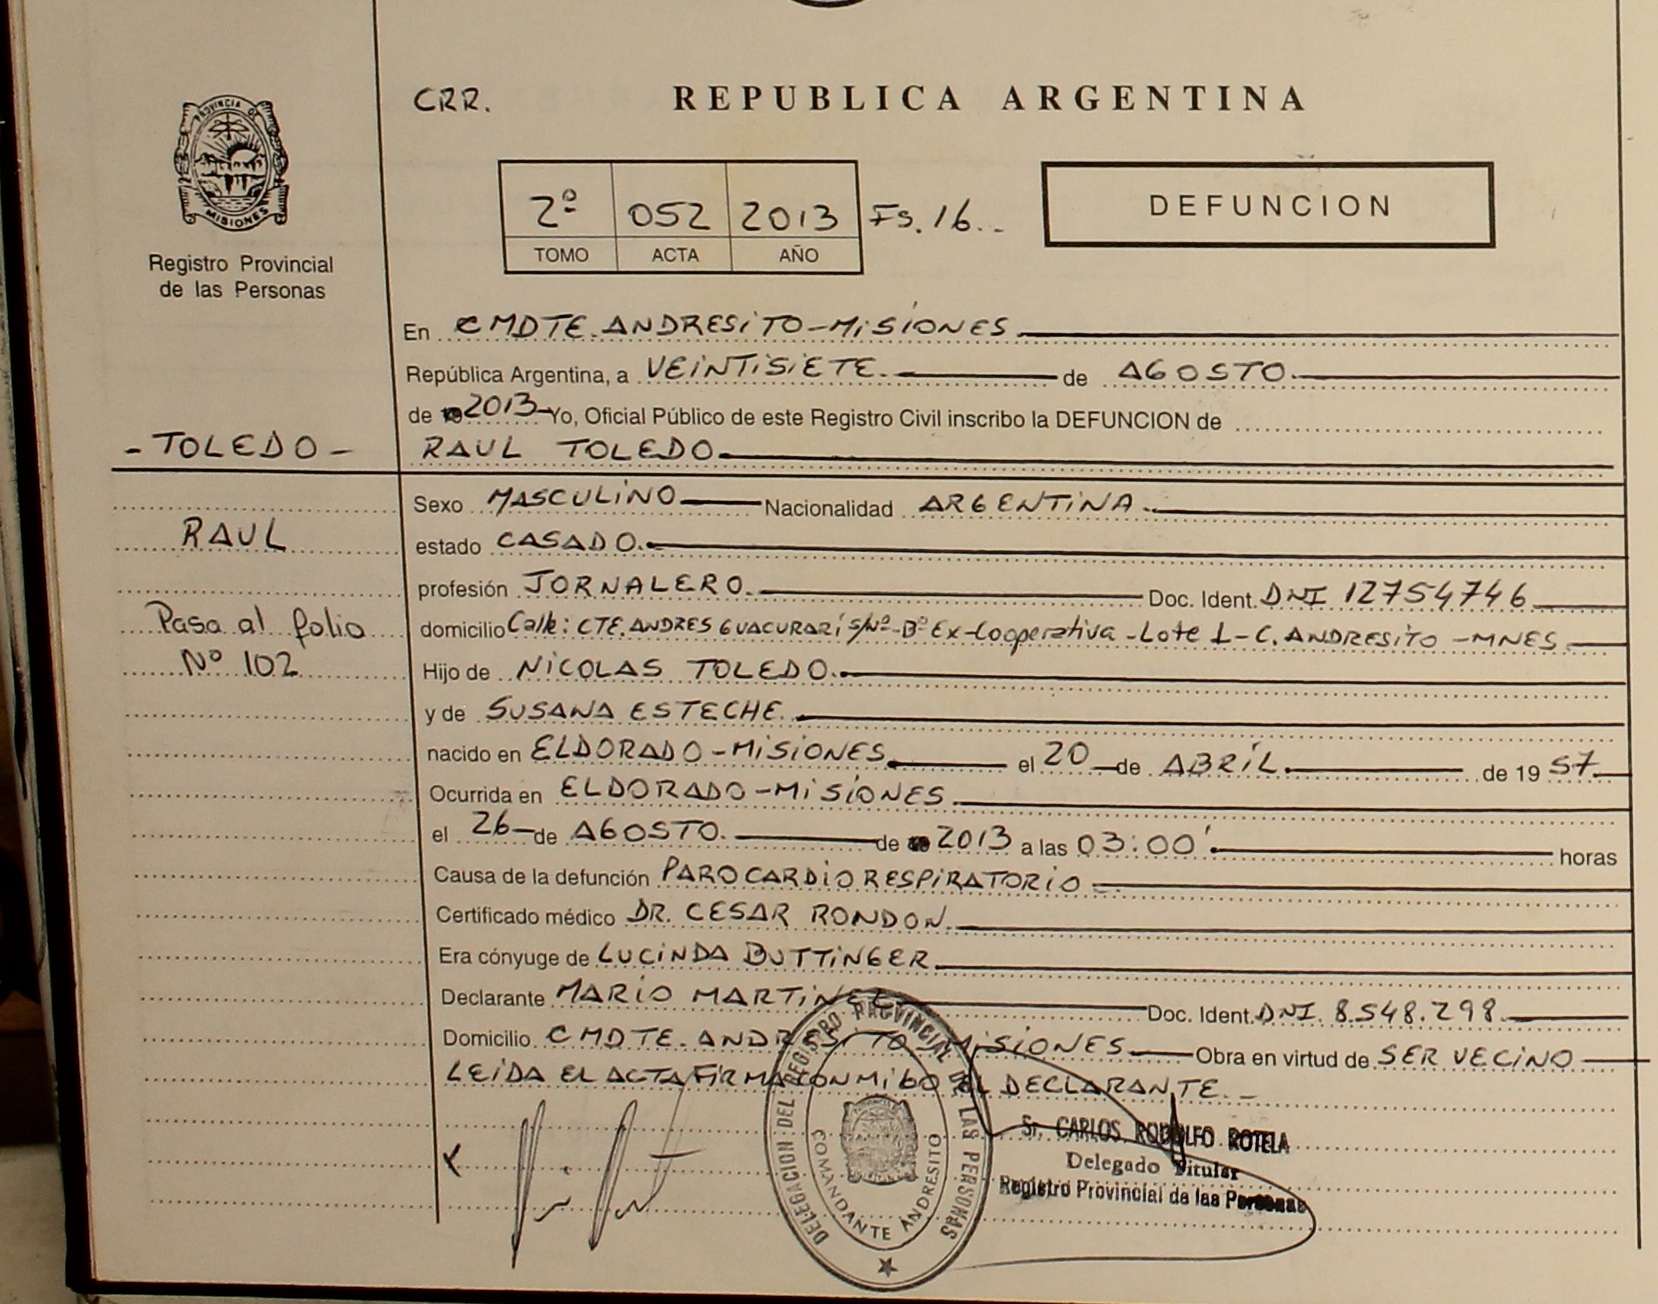 PROVINCIA DE
MISIONES
Registro Provincial
de las Personas
- TOLEDO -
RAUL
Pasa al folio
Nº 102
CRR.
REPUBLICA ARGENTINA
2º 052 2013 Fs. 16..
TOMO ACTA AÑO
DEFUNCION
En CMDTE. ANDRESITO - MISIONES
República Argentina, a VEINTISIETE. de AGOSTO.
de 2013 Yo, Oficial Público de este Registro Civil inscribo la DEFUNCION de
RAUL TOLEDO.
Sexo MASCULINO Nacionalidad ARGENTINA.
estado CASADO.
profesión JORNALERO. Doc. Ident. DNI 12754746
domicilio Calle: CTE. ANDRES GUACURARÍ S/Nº - Bº Ex-Cooperativa - Lote 1 - C. ANDRESITO - MNES
Hijo de NICOLAS TOLEDO.
y de SUSANA ESTECHE.
nacido en ELDORADO - MISIONES el 20 de ABRIL. de 19 57
Ocurrida en ELDORADO - MISIONES
el 26 de AGOSTO. de 2013 a las 03:00'. horas
Causa de la defunción PARO CARDIO RESPIRATORIO
Certificado médico DR. CESAR RONDON.
Era cónyuge de LUCINDA BUTTINGER.
Declarante MARIO MARTINEZ Doc. Ident. DNI. 8.548.298.
Domicilio CMDTE. ANDRESITO MISIONES Obra en virtud de SER VECINO
LEIDA EL ACTA FIRMA CON MIGO EL DECLARANTE. -
DELEGACION DEL REGISTRO PROVINCIAL DE LAS PERSONAS
COMANDANTE ANDRESITO
Sr. CARLOS RODOLFO ROTELA
Delegado Titular
Registro Provincial de las Personas